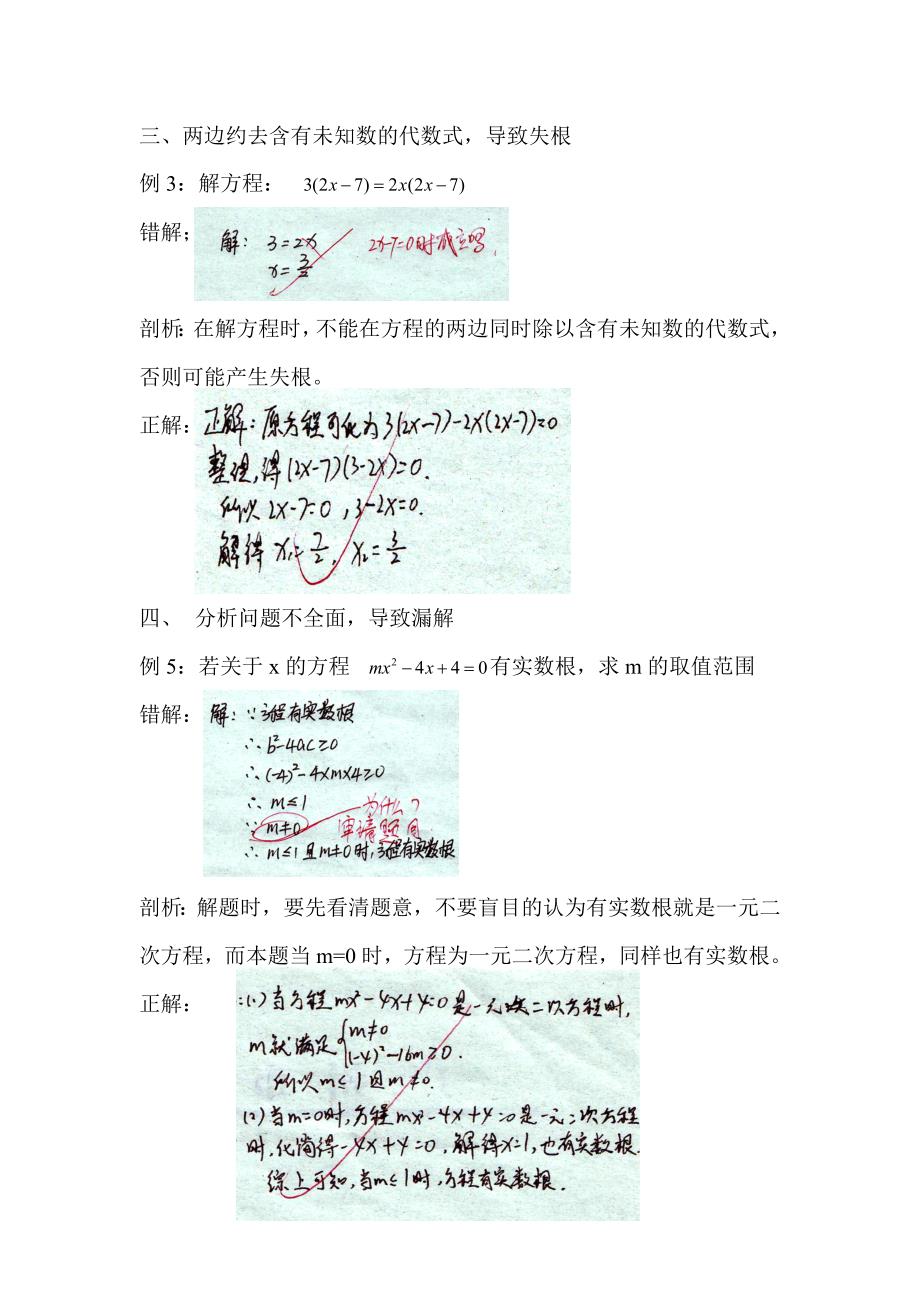 三、两边约去含有未知数的代数式，导致失根
例 3：解方程： 3(2x − 7) = 2x(2x − 7)
错解；
解： 3=2x 2x-7=0时成立吗
x=3/2
剖析：在解方程时，不能在方程的两边同时除以含有未知数的代数式，
否则可能产生失根。
正解：
正解：原方程可化为3(2x-7)-2x(2x-7)=0
整理，得(2x-7)(3-2x)=0.
所以2x-7=0，3-2x=0.
解得 x₁=7/2，x₂=3/2
四、 分析问题不全面，导致漏解
例 5：若关于 x 的方程 mx² − 4x + 4 = 0 有实数根，求 m 的取值范围
错解：
解：∵方程有实数根
∴ b²-4ac≥0
∴ (-4)²-4×m×4≥0
∴ m≤1 为什么？
∵ m≠0 审清题目
∴ m≤1且m≠0时，方程有实数根
剖析：解题时，要先看清题意，不要盲目的认为有实数根就是一元二
次方程，而本题当 m=0 时，方程为一元二次方程，同样也有实数根。
正解：
:(1)当方程mx²-4x+4=0是一元二次方程时，
m就满足{m≠0
(-4)²-16m≥0.
所以m≤1且m≠0.
(2)当m=0时，方程mx²-4x+4=0是一元二次方程
时，化简得-4x+4=0，解得x=1，也有实数根.
综上可知，当m≤1时，方程有实数根.